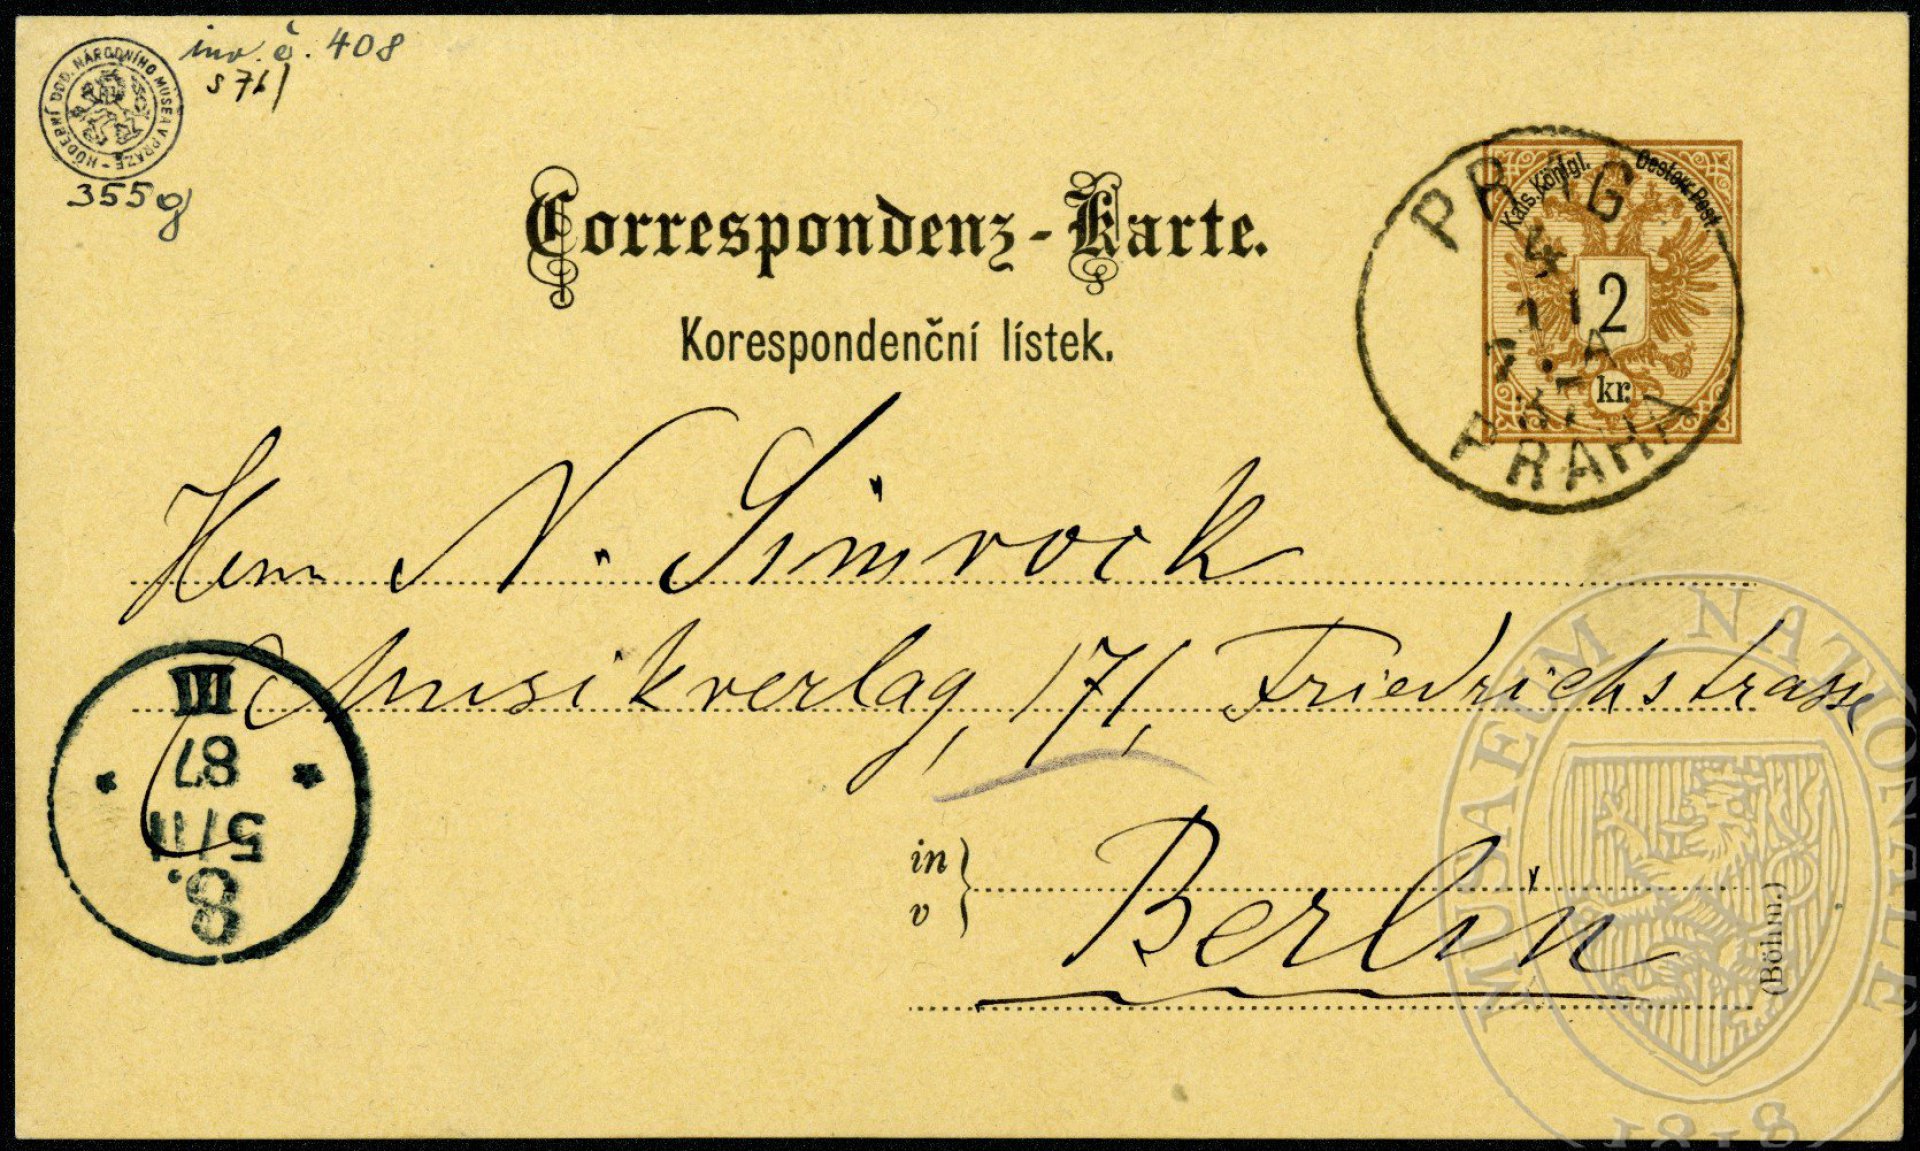 inv. č. 408
s 76/
HUDEBNÍ ODD. NÁRODNÍHO MUSEA V PRAZE
355 g
Correspondenz-Karte.
Korespondenční lístek.
Kais. Königl. Oesterr. Post
2
kr.
PRAG
4
11
87
PRAHA
Herrn N. Simrock
Musikverlag, 171, Friedrichstrasse
in
v
Berlin
(Böhm.)
III
87
5/11
8.
MUSAEUM NATIONALE
1818